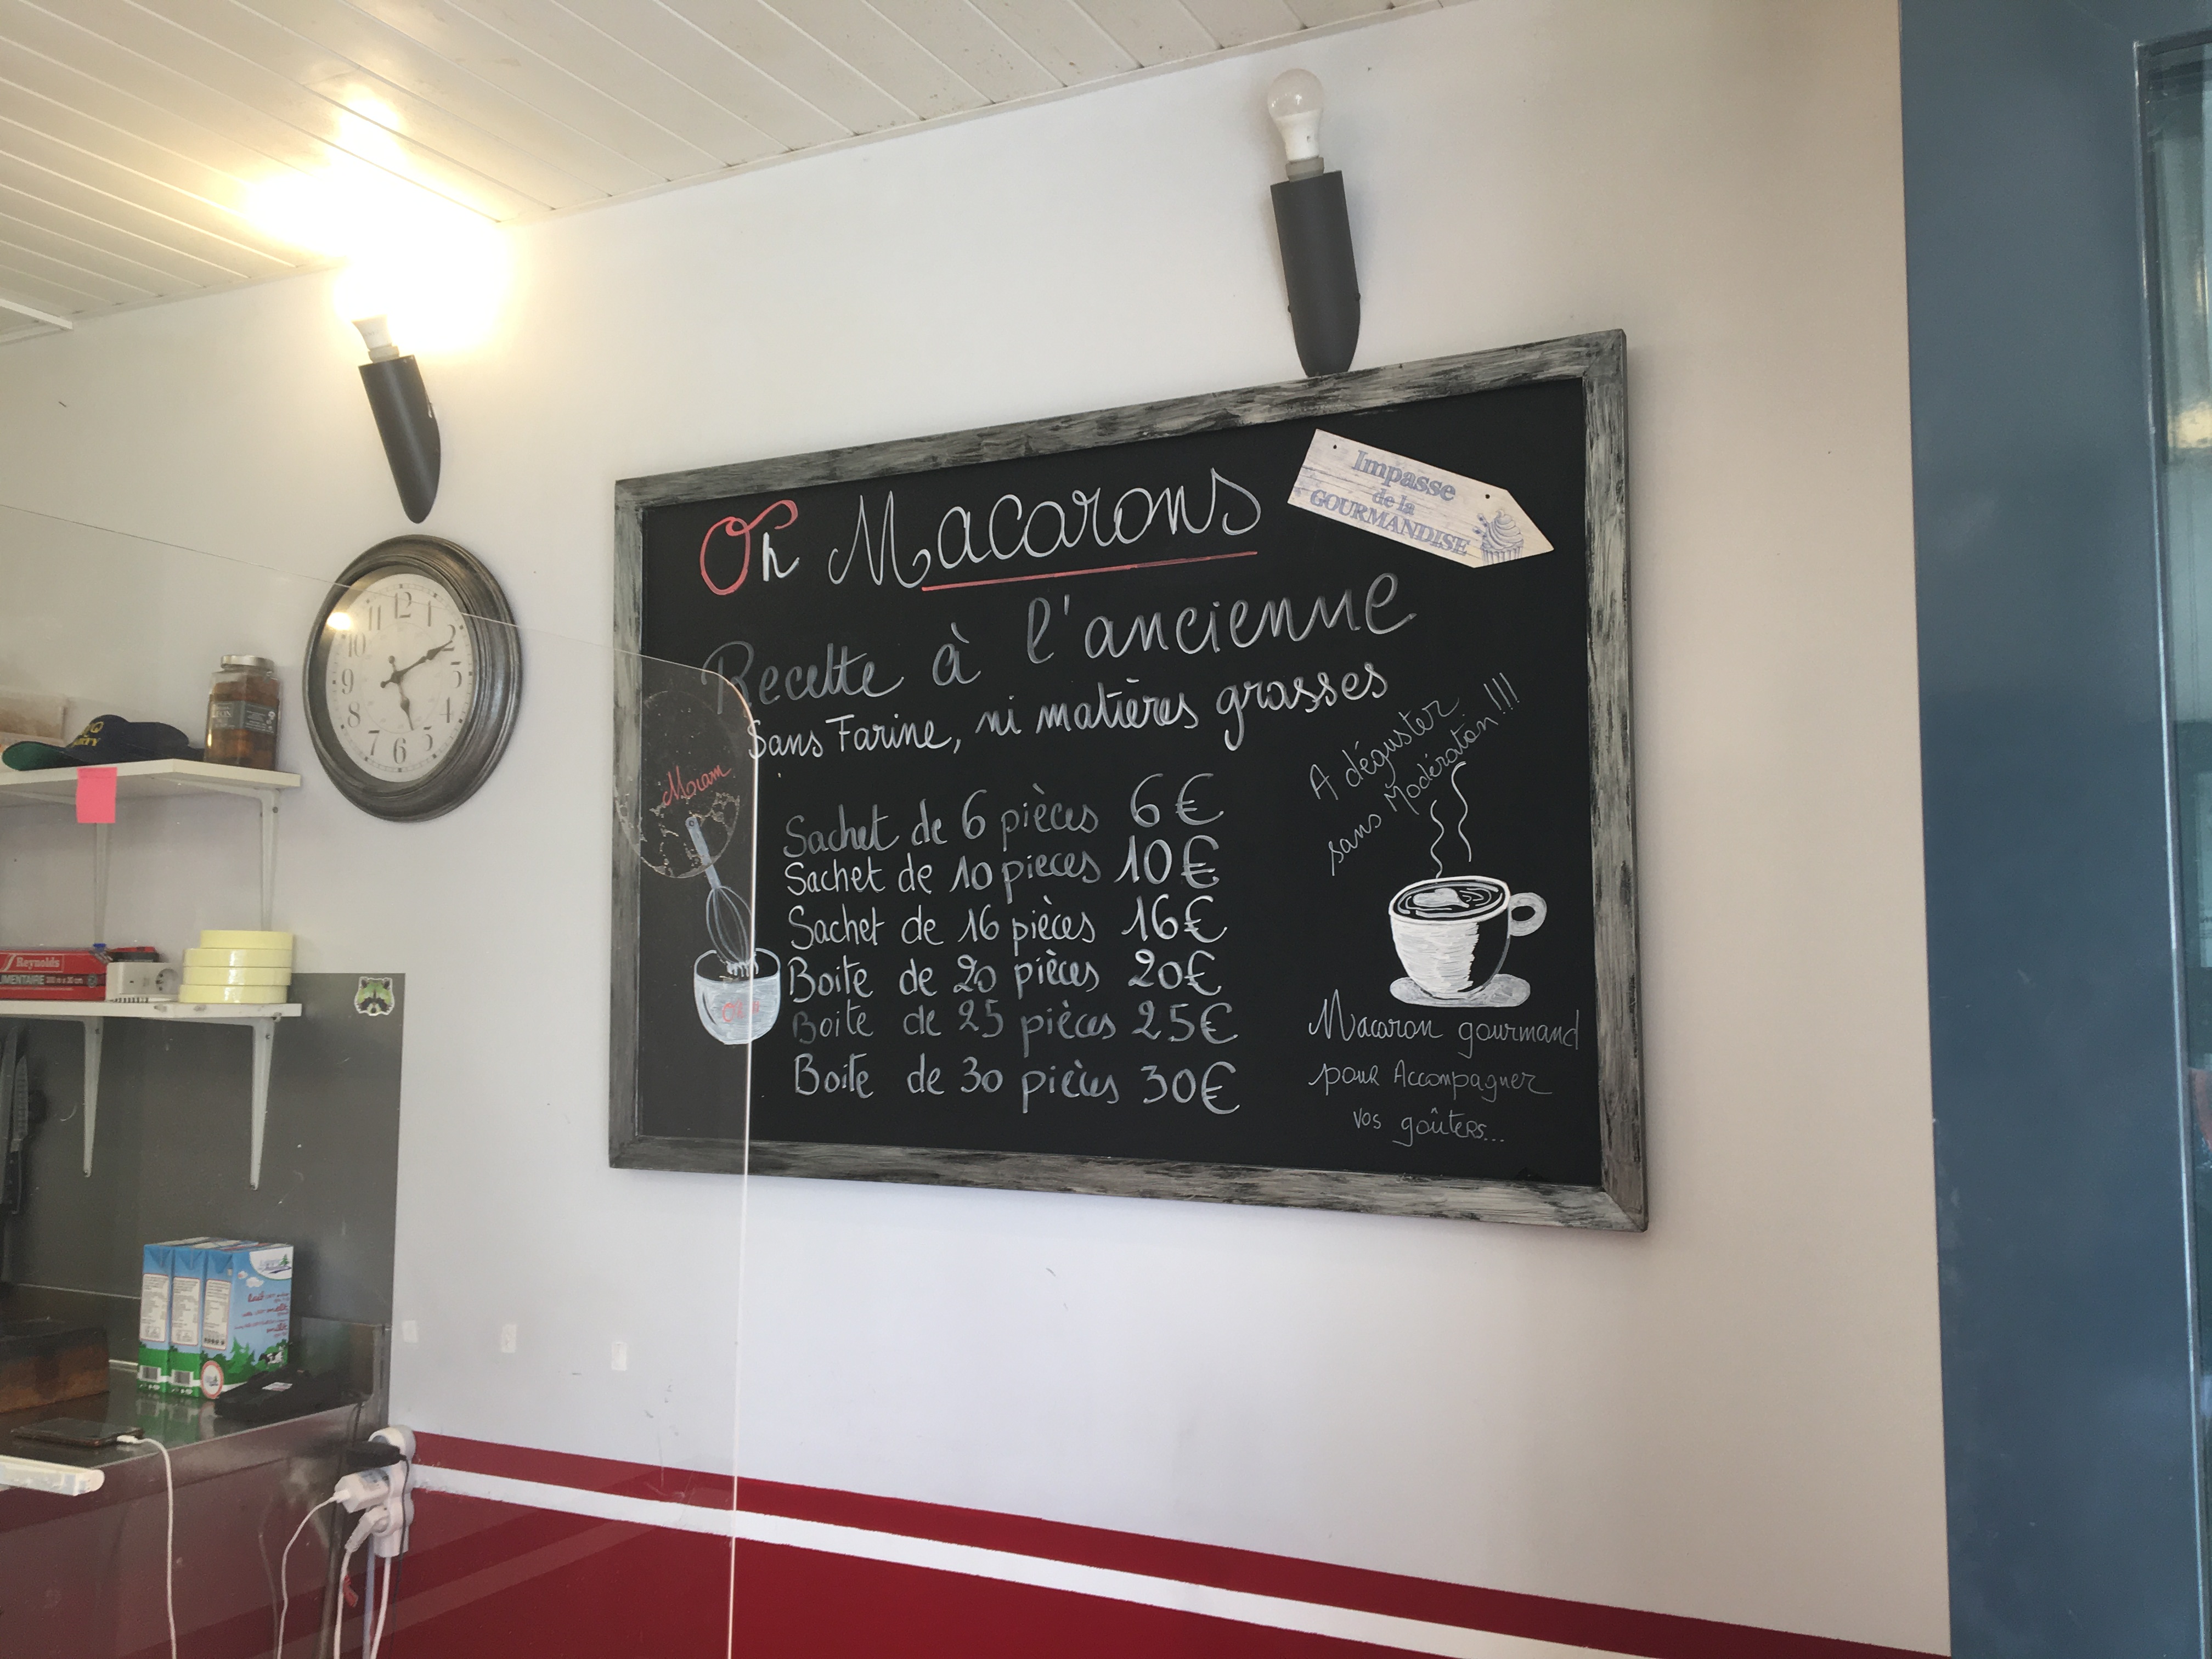 Oh Macarons
Impasse
de la
GOURMANDISE
Recette à l'ancienne
Sans Farine, ni matières grasses
Miam
Sachet de 6 pièces 6€
Sachet de 10 pieces 10€
Sachet de 16 pièces 16€
Boite de 20 pièces 20€
Boite de 25 pièces 25€
Boite de 30 pièces 30€
A déguster
sans Modération!!!
Macaron gourmand
pour Accompagner
vos goûters...
12
1
2
3
4
5
6
7
8
9
10
11
Reynolds